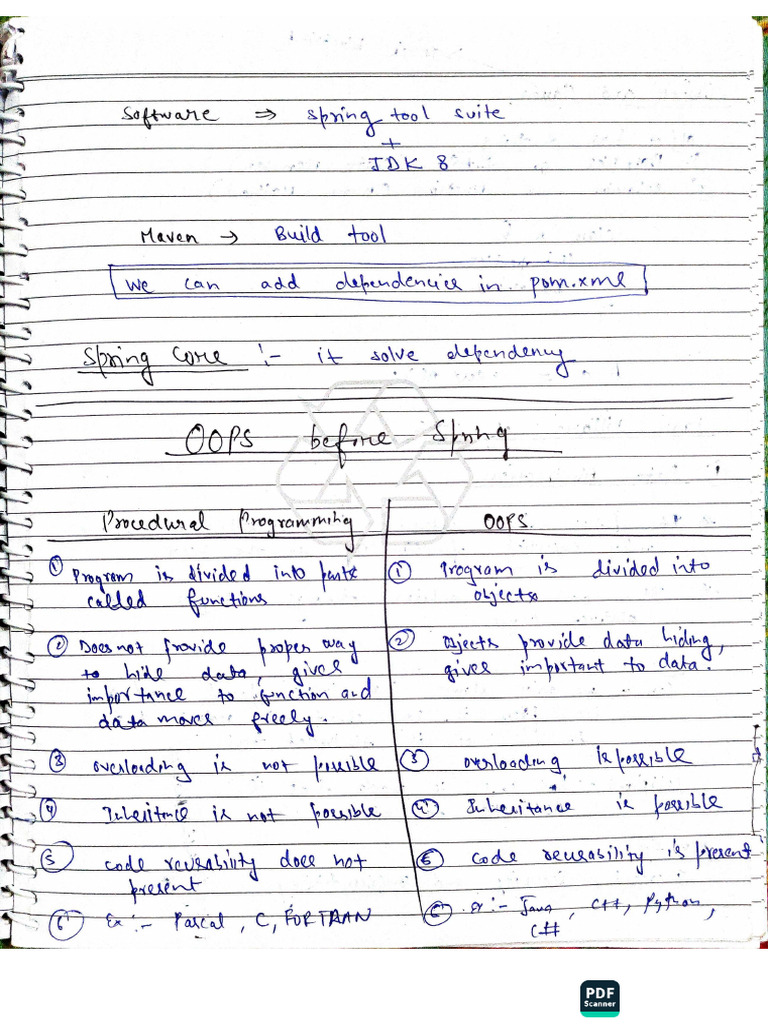 Software ⇒ Spring tool suite
+
JDK 8
Maven → Build tool
We can add dependencies in pom.xml
Spring Core :- it solve dependency
OOPS before Spring
Procedural Programming
① Program is divided into parts
called functions
② Does not provide proper way
to hide data, gives
importance to function and
data moves freely.
③ overloading is not possible
④ Inheritance is not possible
⑤ code reusability does not
present
⑥ Ex :- Pascal, C, FORTRAN
OOPS
① Program is divided into
objects
② objects provide data hiding,
gives important to data.
③ overloading is possible
④ Inheritance is possible
⑤ code reusability is present
⑥ Ex :- Java, C++, Python,
C#
PDF
Scanner